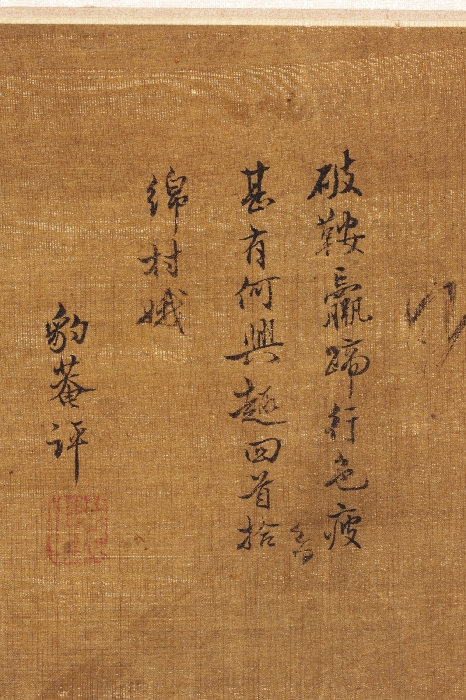 破鞍羸蹄行色疲
甚有何興趣回首拾
綿村娥
豹菴評